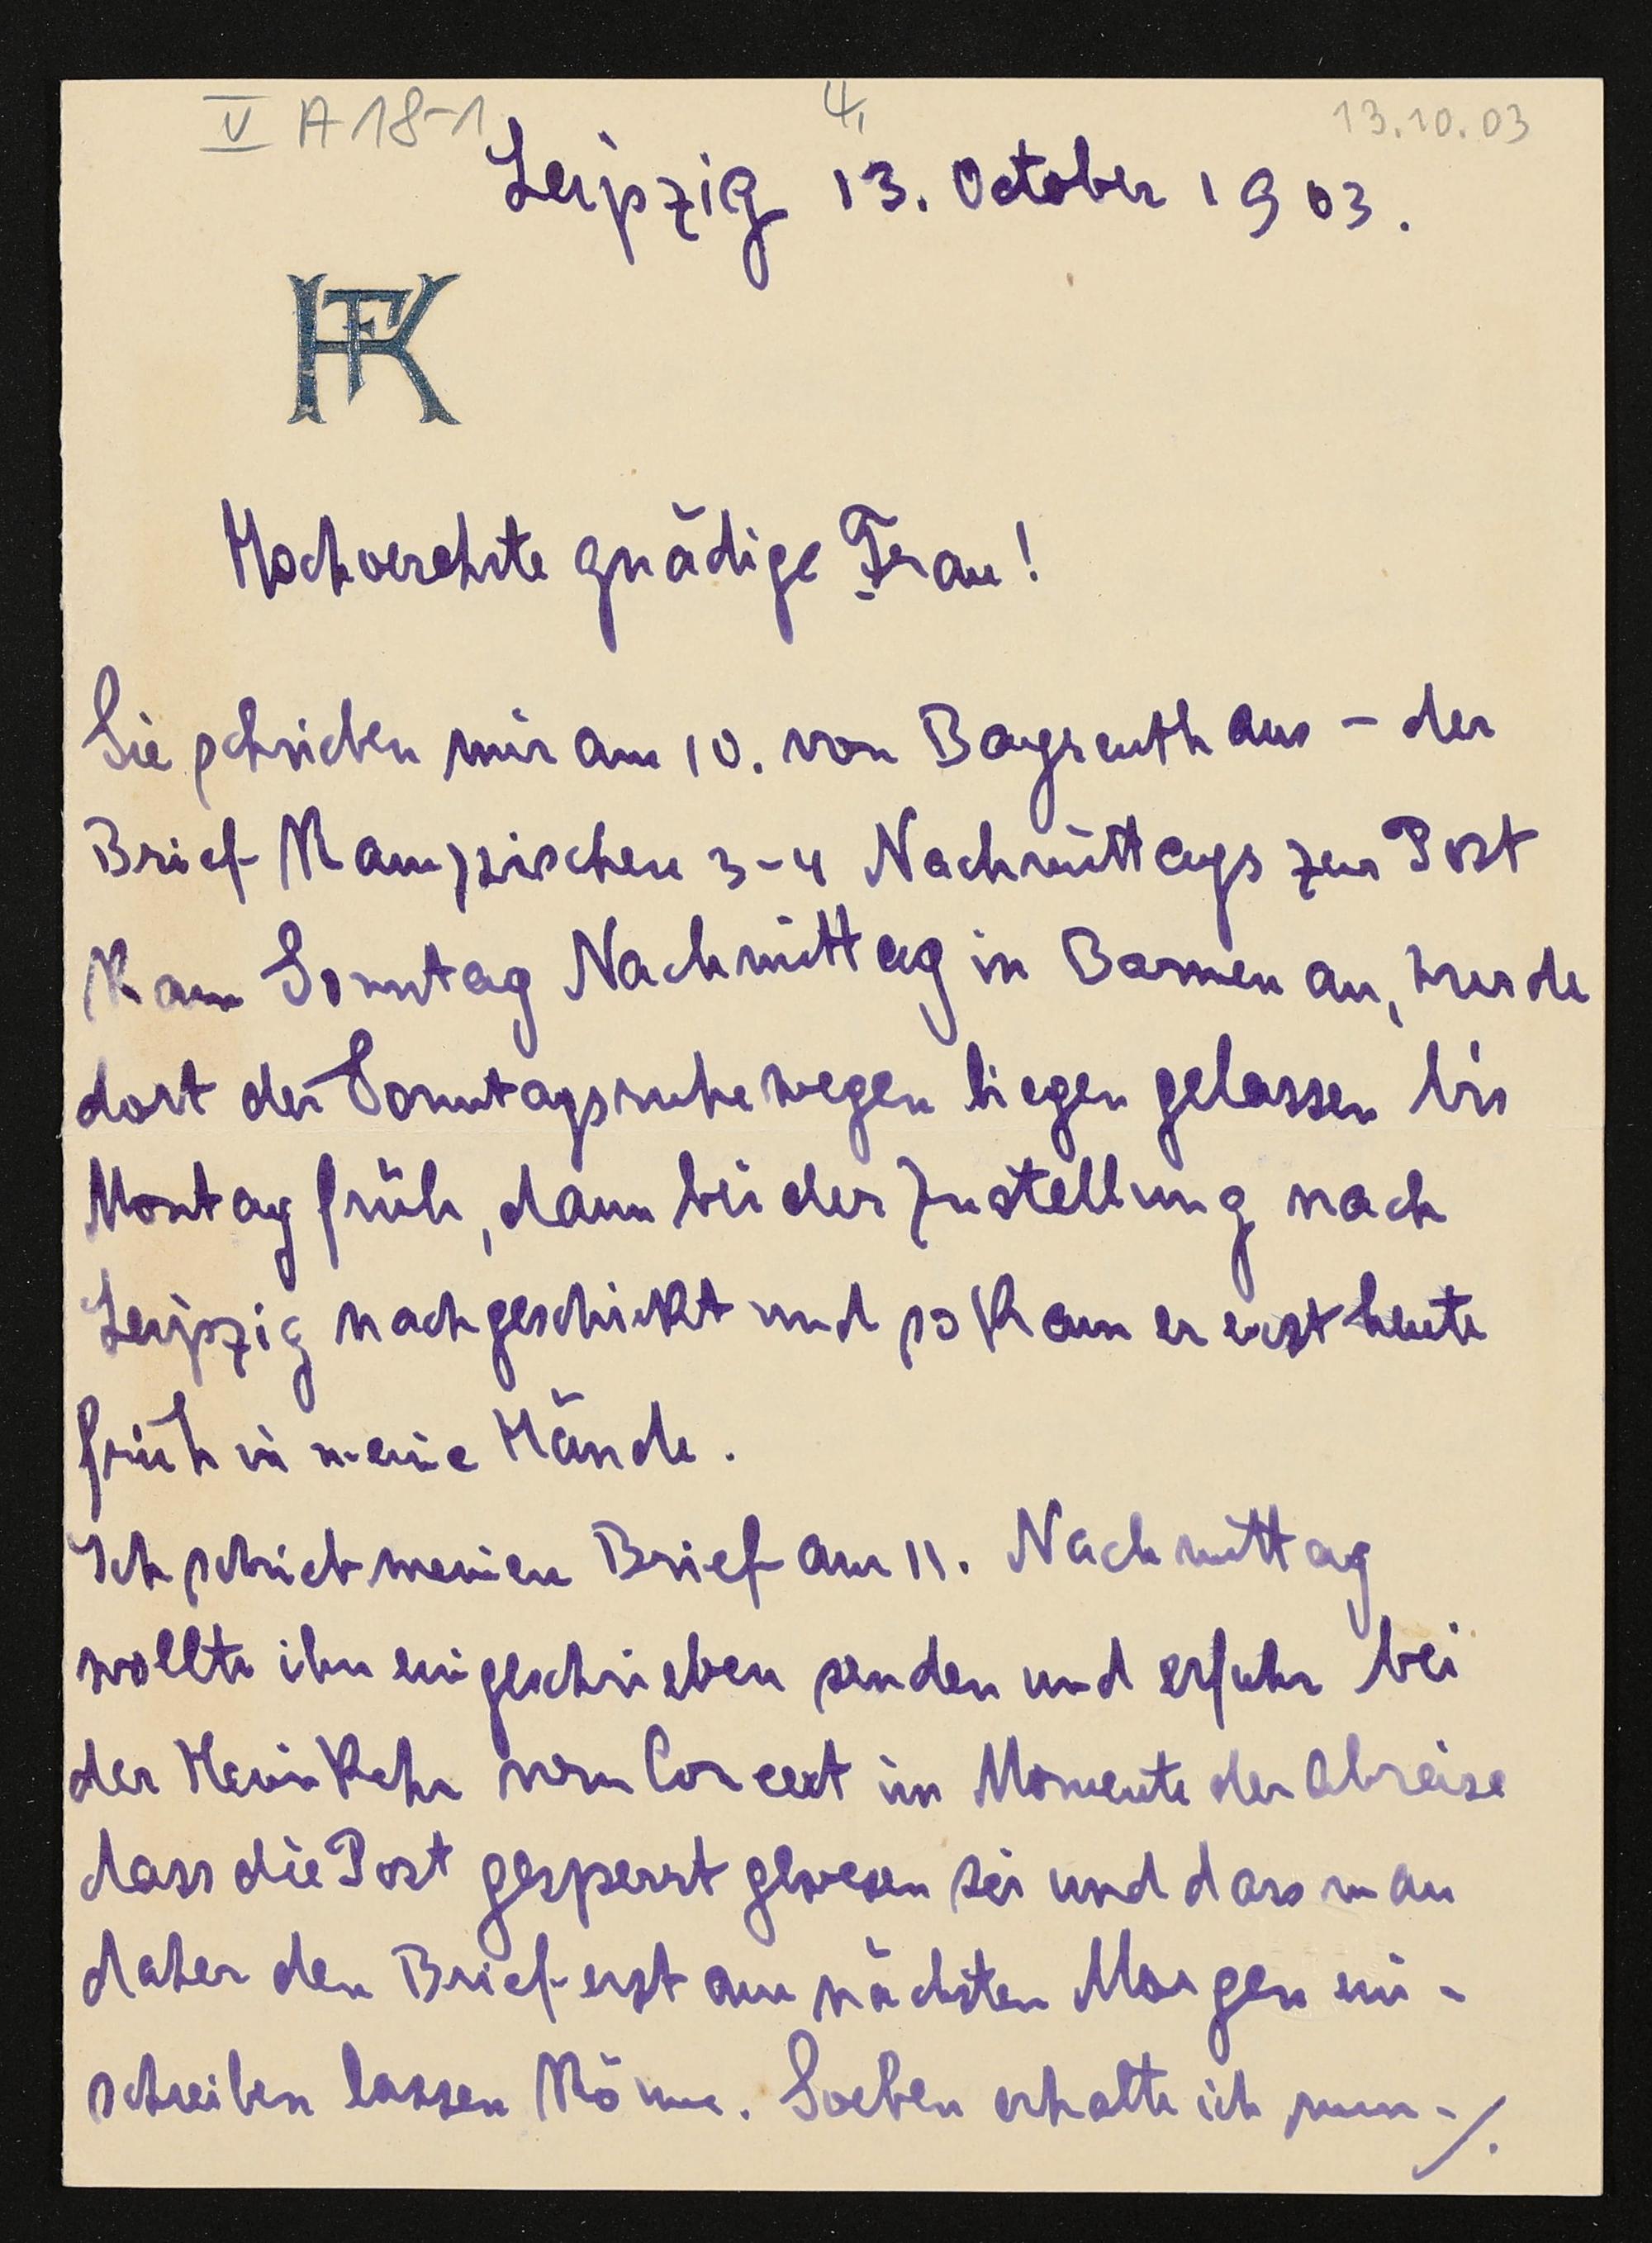 V A 18-1
4,
13.10.03
Leipzig 13. October 1903.
HFK
Hochverehrte gnädige Frau!
Sie schrieben mir am 10. von Bayreuth aus – der
Brief kam zwischen 3-4 Nachmittags zur Post
kam Sonntag Nachmittag in Barmen an, wurde
dort der Sonntagsruhe wegen liegen gelassen bis
Montag früh, dann bei der Zustellung nach
Leipzig nachgeschickt und so kam er erst heute
früh in meine Hände.
Ich schrieb meinen Brief am 11. Nachmittag
wollte ihn eingeschrieben senden und erfuhr bei
der Heimkehr vom Concert im Momente der Abreise
dass die Post gesperrt gewesen sei und dass man
daher den Brief erst am nächsten Morgen ein-
schreiben lassen könne. Soeben erhalte ich nun-/.